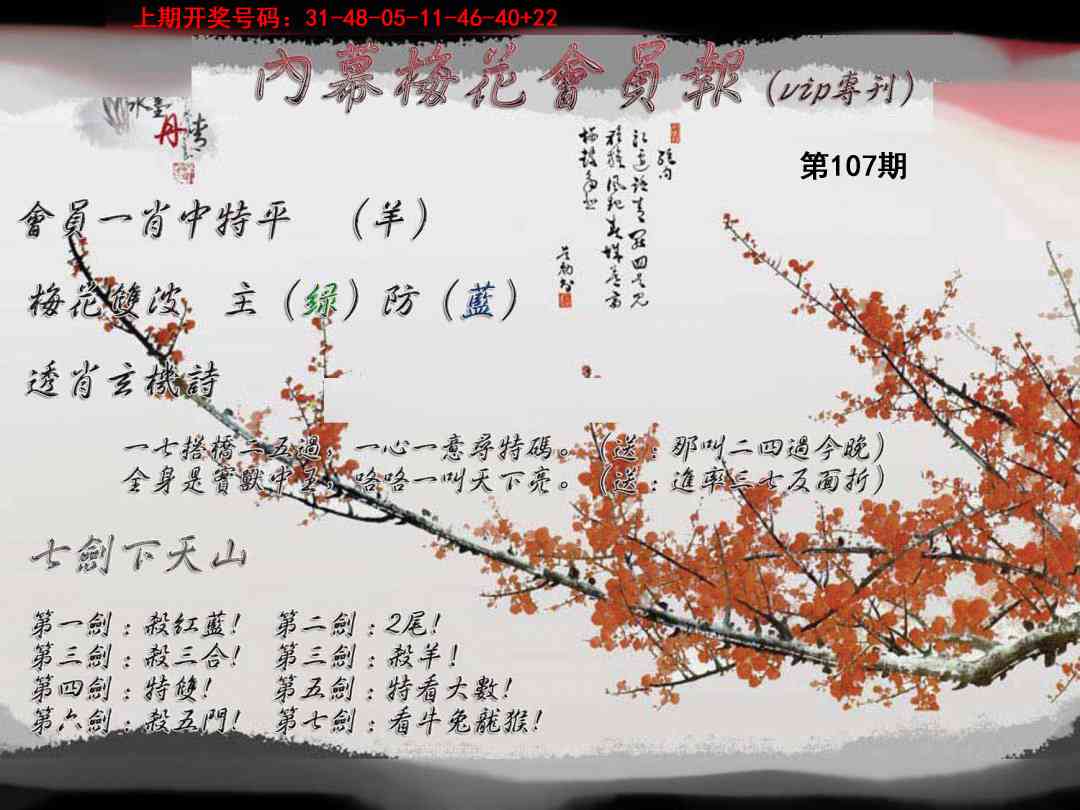 上期开奖号码：31-48-05-11-46-40+22
內幕梅花會員報（vip專刊）
水墨
丹青
第107期
會員一肖中特平 （羊）
梅花雙波 主（綠）防（藍）
透肖玄機詩
一七搭橋二五過，一心一意尋特碼。（送：那叫二四過今晚）
全身是寶獸中王，咯咯一叫天下亮。（送：進率三七反面折）
七劍下天山
第一劍：殺紅藍！ 第二劍：2尾！
第三劍：殺三合！ 第三劍：殺羊！
第四劍：特雙！ 第五劍：特看大數！
第六劍：殺五門！ 第七劍：看牛兔龍猴！